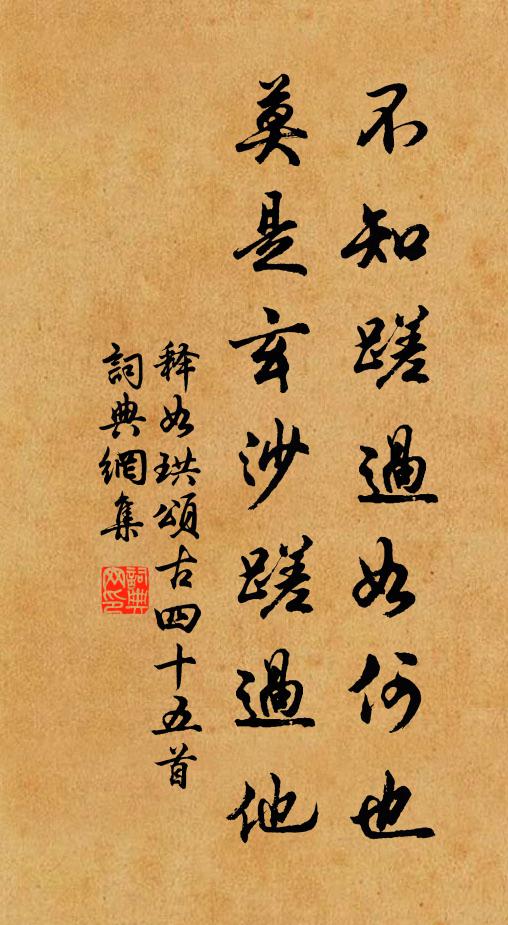 不知蹉過如何也
莫是玄沙蹉過他
释如珙頌古四十五首
詞典網集
詞典网印